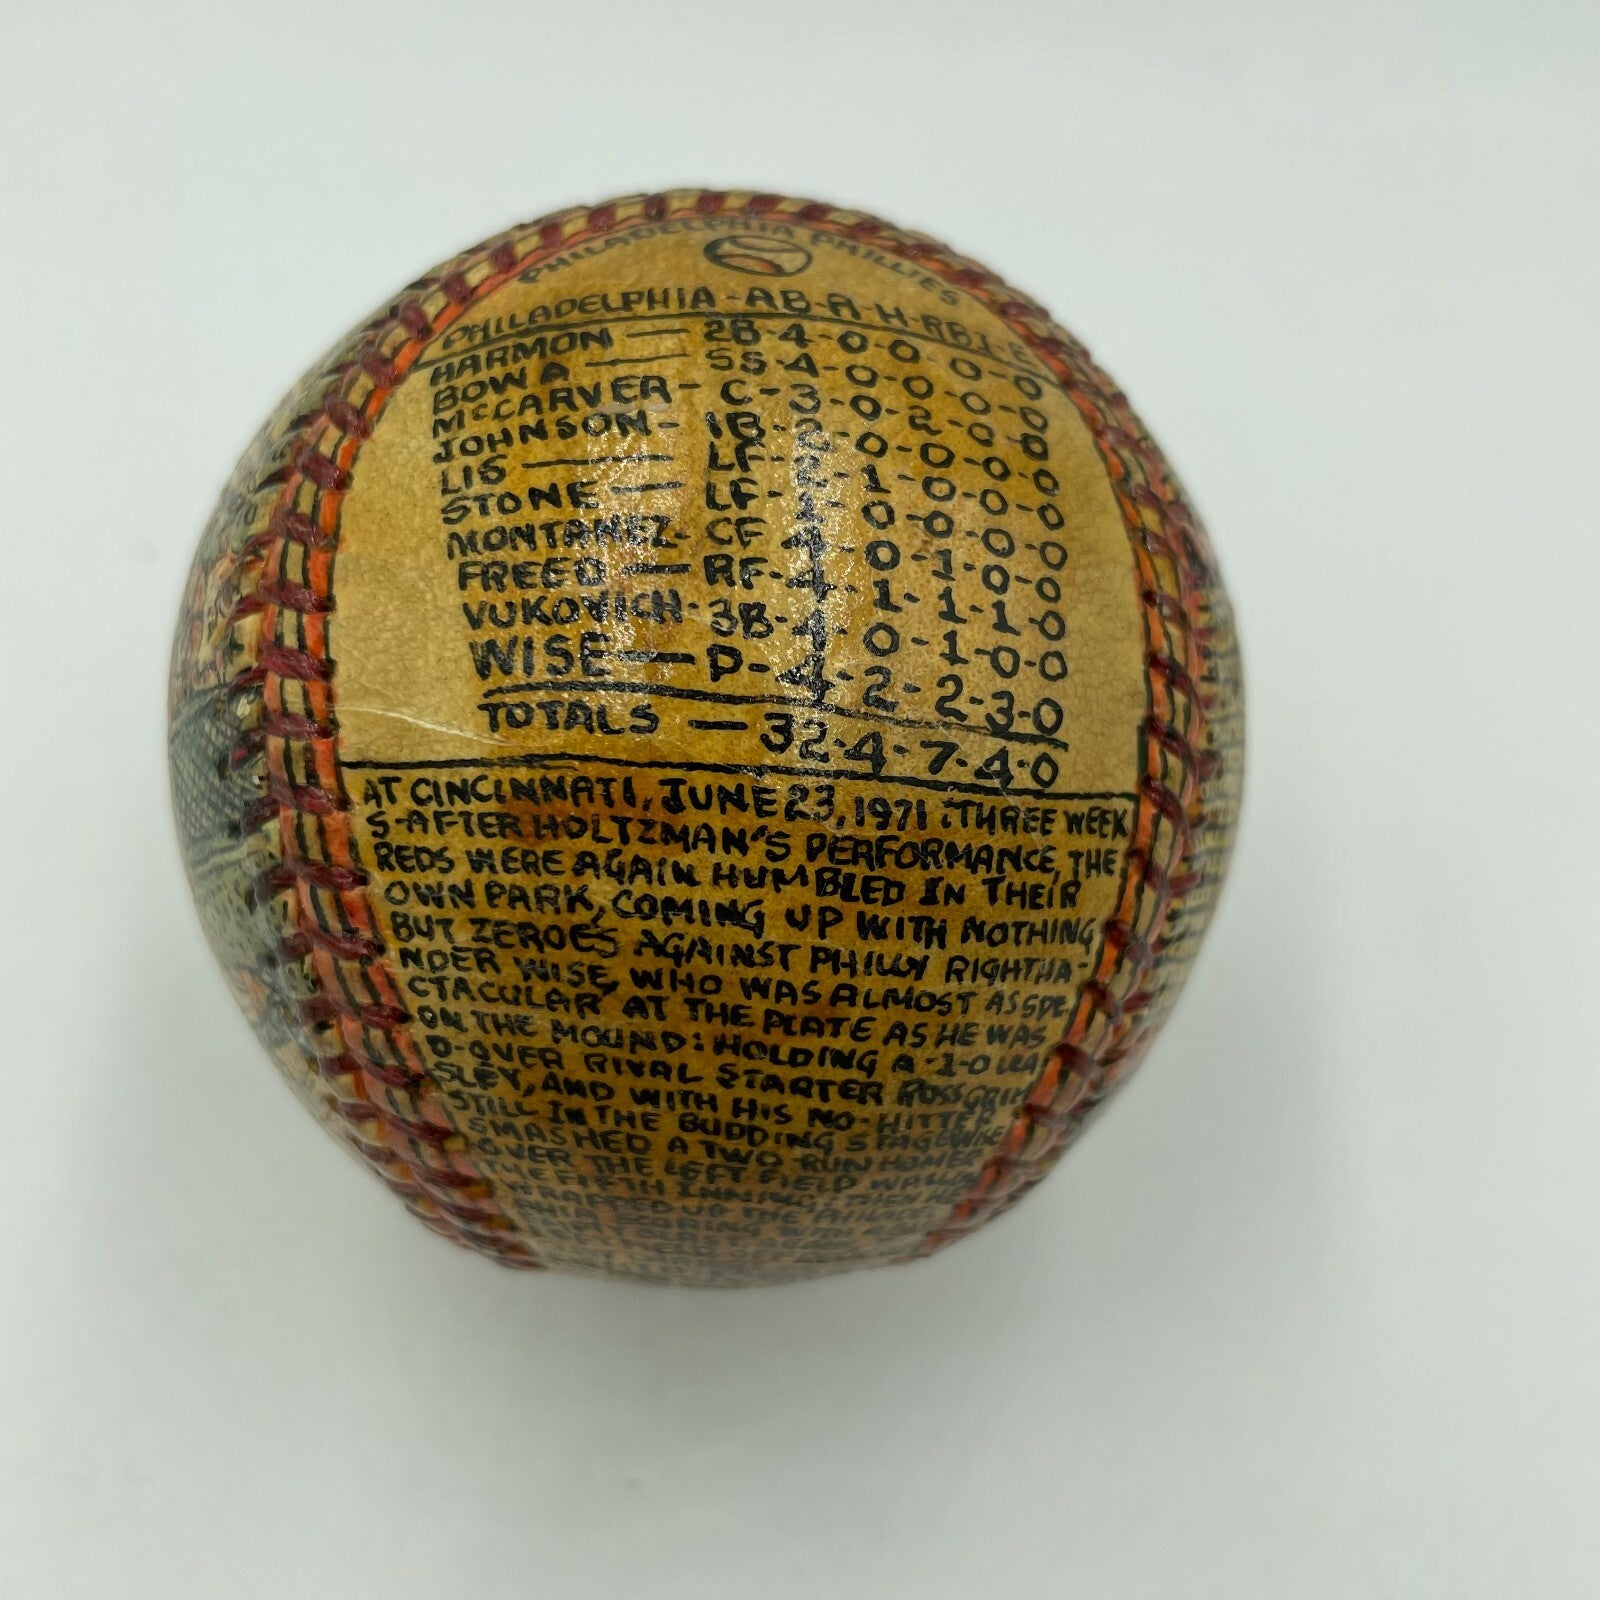 PHILADELPHIA PHILLIES
PHILADELPHIA-AB-R-H-RBI-E
HARMON — 2B-4-0-0-0-0
BOWA — SS-4-0-0-0-0
McCARVER - C-3-0-2-0-0
JOHNSON - 1B-2-0-0-0-0
LIS — LF-2-1-0-0-0
STONE — LF-1-0-0-0-0
MONTANEZ- CF-4-0-1-0-0
FREED — RF-4-1-1-1-0
VUKOVICH-3B-4-0-1-0-0
WISE — P-4-2-2-3-0
TOTALS — 32-4-7-4-0
AT CINCINNATI, JUNE 23, 1971: THREE WEEK
S-AFTER HOLTZMAN'S PERFORMANCE, THE
REDS WERE AGAIN HUMBLED IN THEIR
OWN PARK, COMING UP WITH NOTHING
BUT ZEROES AGAINST PHILLY RIGHTHA-
NDER WISE, WHO WAS ALMOST AS SPE
CTACULAR AT THE PLATE AS HE WAS
ON THE MOUND: HOLDING A-1-0 LEA
D-OVER RIVAL STARTER ROSS GRIM
SLEY, AND WITH HIS NO-HITTER
STILL IN THE BUDDING STAGE WISE
SMASHED A TWO-RUN HOMER
OVER THE LEFT FIELD WALL
THE FIFTH INNING; THEN HE
WRAPPED UP THE PHILADEL
PHIA SCORING